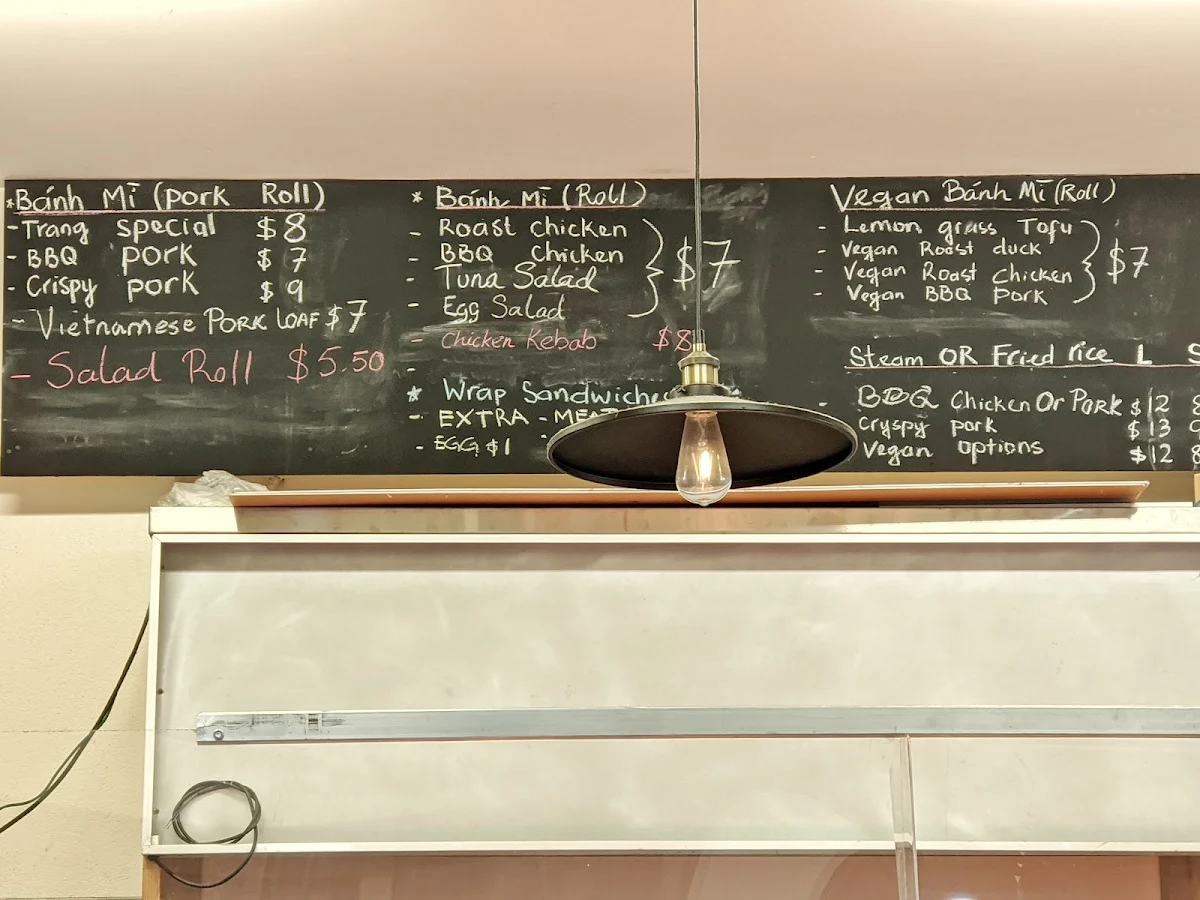 *Bánh Mī (pork Roll)
- Trang special $8
- BBQ pork $7
- Crispy pork $9
- Vietnamese PORK LOAF $7
- Salad Roll $5.50
* Bánh Mī (Roll)
- Roast chicken
- BBQ Chicken
- Tuna Salad
- Egg Salad
$7
- Chicken Kebab $8
* Wrap Sandwiches
- EXTRA - MEAT
- EGG $1
Vegan Bánh Mī (Roll)
- Lemon grass Tofu
- Vegan Roast duck
- Vegan Roast chicken
- Vegan BBQ pork
$7
Steam OR Fried rice L S
- BBQ Chicken Or Pork $12 8
- Cryspy pork $13 9
Vegan options $12 8